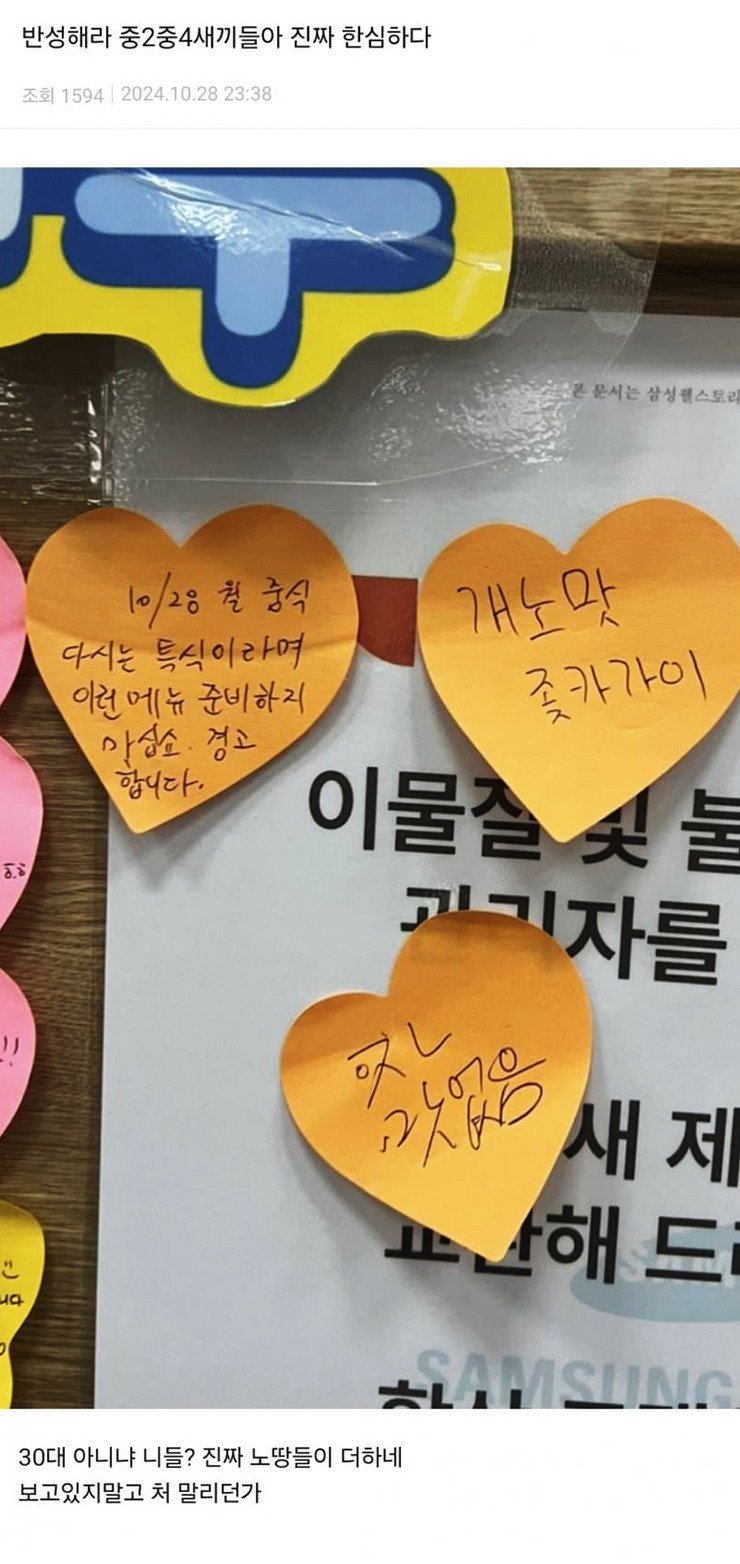 반성해라 중2중4새끼들아 진짜 한심하다
조회 1594 2024.10.28 23:38
본 문서는 삼성웰스토리
10/28 월 중식
다시는 특식이라며
이런메뉴 준비하지
마십쇼. 경고
합니다.
개노맛
좆카가이
이물질 및 불
관리자를
맛없음
새 제
교환해 드
SAMSUNG
30대 아니냐 니들? 진짜 노땅들이 더하네
보고있지말고 처 말리던가